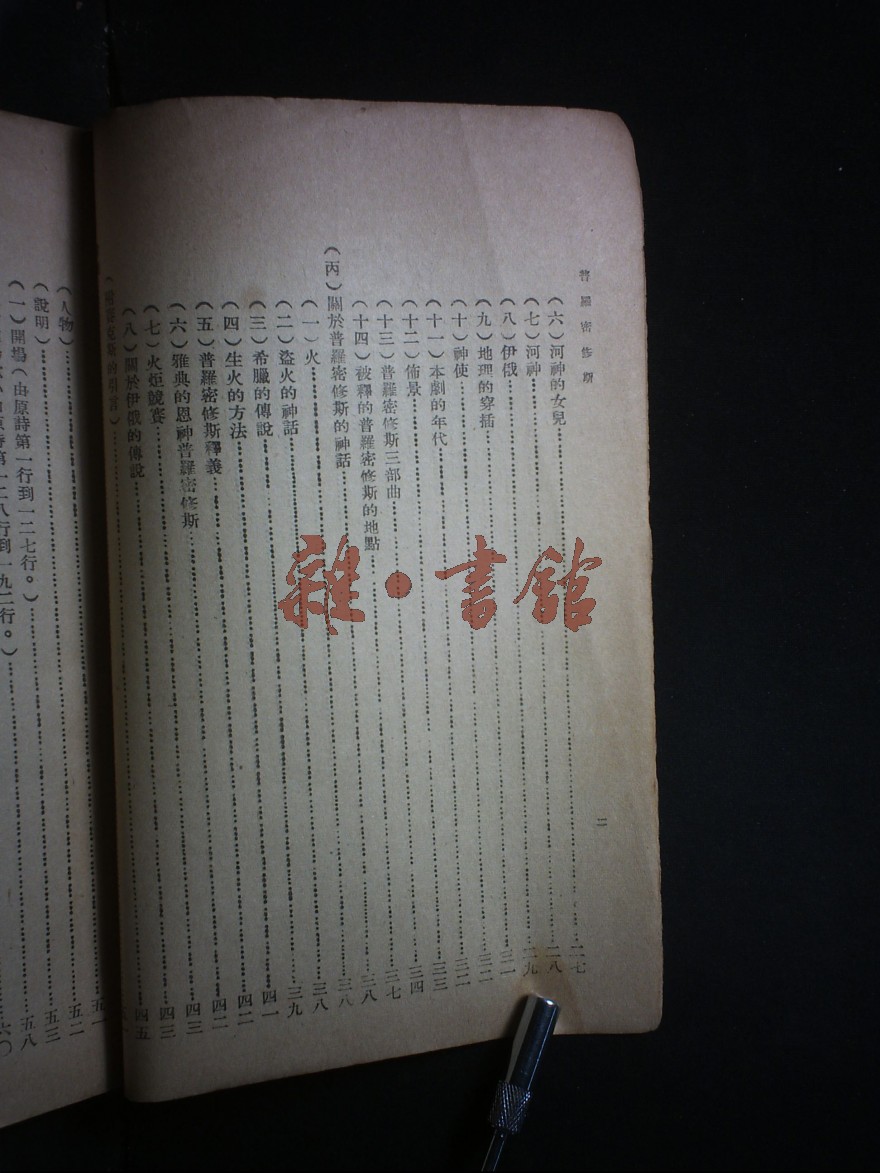 普羅密修斯
二
(六)河神的女兒……二七
(七)河神……二八
(八)伊俄……二九
(九)地理的穿插……三一
(十)神使……三二
(十一)本劇的年代……三三
(十二)佈景……三四
(十三)普羅密修斯三部曲……三七
(十四)被釋的普羅密修斯的地點……三八
(丙)關於普羅密修斯的神話……三八
(一)火……三八
(二)盜火的神話……三九
(三)希臘的傳說……四一
(四)生火的方法……四二
(五)普羅密修斯釋義……四二
(六)雅典的恩神普羅密修斯……四三
(七)火炬競賽……四三
(八)關於伊俄的傳說……四五
克斯的引言)……
(人物)……五二
(說明)……五三
(一)開場(由原詩第一行到一二七行。)……五八
原詩第一二八行到一九二行。)……六〇
雜·書館